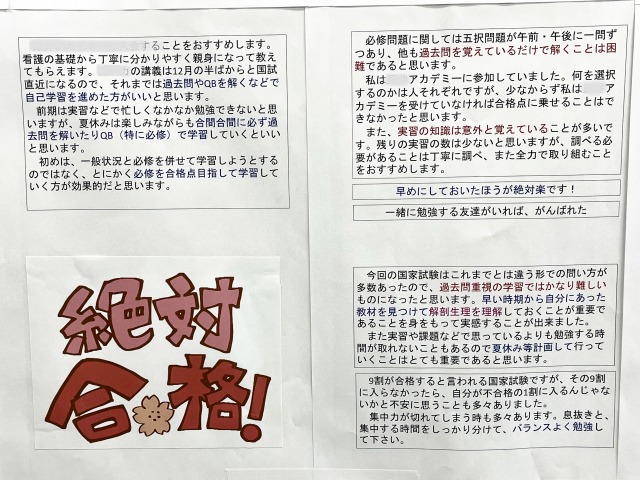 することをおすすめします。
看護の基礎から丁寧に分かりやすく親身になって教え
てもらえます。 の講義は12月の半ばからと国試
直近になるので、それまでは過去問やQBを解くなどで
自己学習を進めた方がいいと思います。
前期は実習などで忙しくなかなか勉強できないと思い
ますが、夏休みは楽しみながらも合間合間に必ず過
去問を解いたりQB（特に必修）で学習していくといい
と思います。
初めは、一般状況と必修を併せて学習しようとする
のではなく、とにかく必修を合格点目指して学習して
いく方が効果的だと思います。
絶対
合格!
必修問題に関しては五択問題が午前・午後に一問ず
つあり、他も過去問を覚えているだけで解くことは困
難であると思います。
私は アカデミーに参加していました。何を選択
するのかは人それぞれですが、少なからず私は ア
カデミーを受けていなければ合格点に乗せることはで
きなかったと思います。
また、実習の知識は意外と覚えていることが多いで
す。残りの実習の数は少ないと思いますが、調べる必
要があることは丁寧に調べ、また全力で取り組むこと
をおすすめします。
早めにしておいたほうが絶対楽です！
一緒に勉強する友達がいれば、がんばれた
今回の国家試験はこれまでとは違う形での問い方が
多数あったので、過去問重視の学習ではかなり難しい
ものになったと思います。早い時期から自分にあった
教材を見つけて解剖生理を理解しておくことが重要で
あることを身をもって実感することが出来ました。
また実習や課題などで思っているよりも勉強する時
間が取れないこともあるので夏休み等計画して行って
いくことはとても重要であると思います。
9割が合格すると言われる国家試験ですが、その9割
に入らなかったら、自分が不合格の1割に入るんじゃな
いかと不安に思うことも多々ありました。
集中力が切れてしまう時も多々あります。息抜きと、
集中する時間をしっかり分けて、バランスよく勉強し
て下さい。